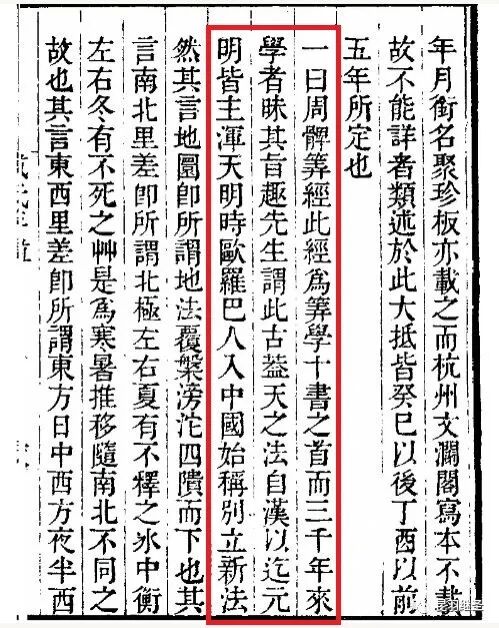 年月銜名聚珍板亦載之而杭州文瀾閣寫本不載
故不能詳者類述於此大抵皆癸巳以後丁酉以前
五年所定也
一曰周髀筭經此經爲筭學十書之首而三千年來
學者昧其旨趣先生謂此古葢天之法自漢以迄元
明皆主渾天明時歐羅巴人入中國始稱別立新法
然其言地圓卽所謂地法覆槃滂沱四隤而下也其
言南北里差卽所謂北極左右夏有不釋之氷中衡
左右冬有不死之艸是爲寒暑推移隨南北不同之
故也其言東西里差卽所謂東方日中西方夜半西